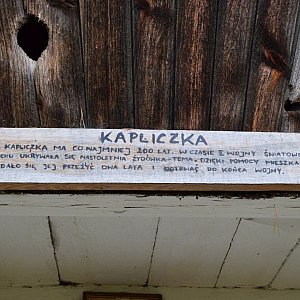 KAPLICZKA
KAPLICZKA MA CO NAJMNIEJ 200 LAT. W CZASIE II WOJNY ŚWIATOW
CHU UKRYWAŁA SIĘ NASTOLETNIA ŻYDÓWKA-TEMA. DZIĘKI POMOCY MIESZKA
DAŁO SIĘ JEJ PRZEŻYĆ DWA LATA I DOTRWAĆ DO KOŃCA WOJNY.